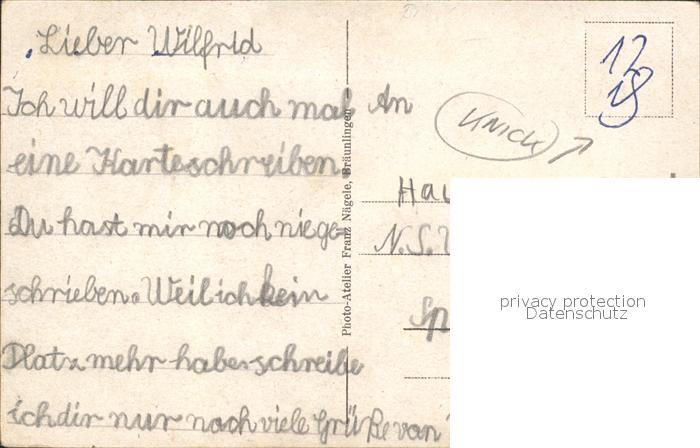 Lieber Wilfrid
Ich will dir auch mal
eine Karte schreiben.
Du hast mir noch niege=
schrieben. Weil ich kein
Platz mehr habe schreibe
ich dir nur noch viele Grüße von
Photo-Atelier Franz Nägele, Bräunlingen
An
KNICK
12
Hau
N.S.
Sp
privacy protection
Datenschutz